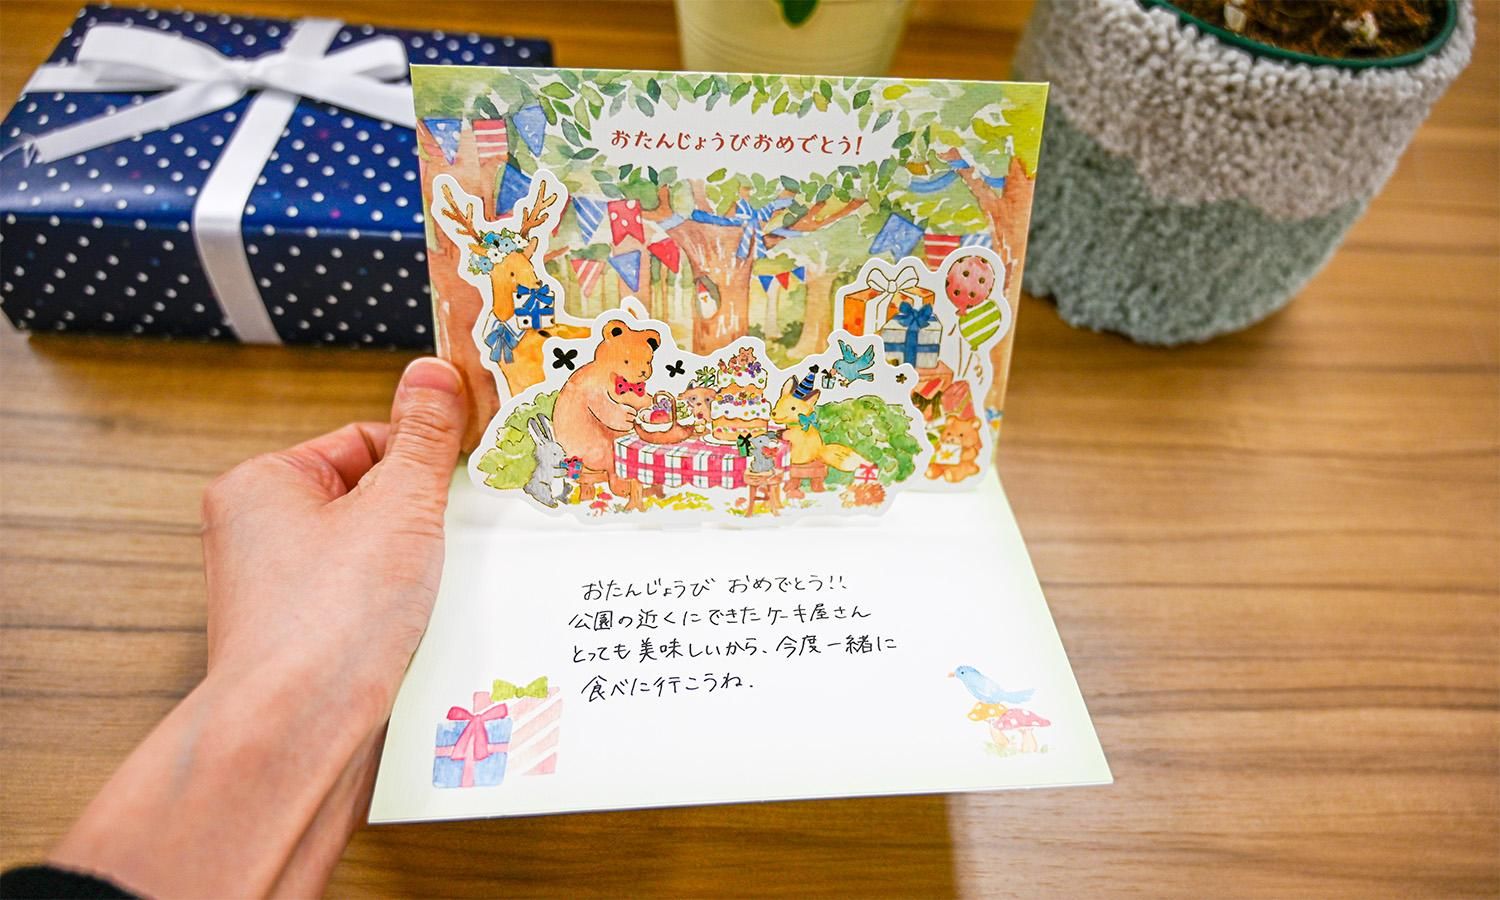 おたんじょうびおめでとう!
おたんじょうび おめでとう!!
公園の近くにできたケーキ屋さん
とっても美味しいから、今度一緒に
食べに行こうね.